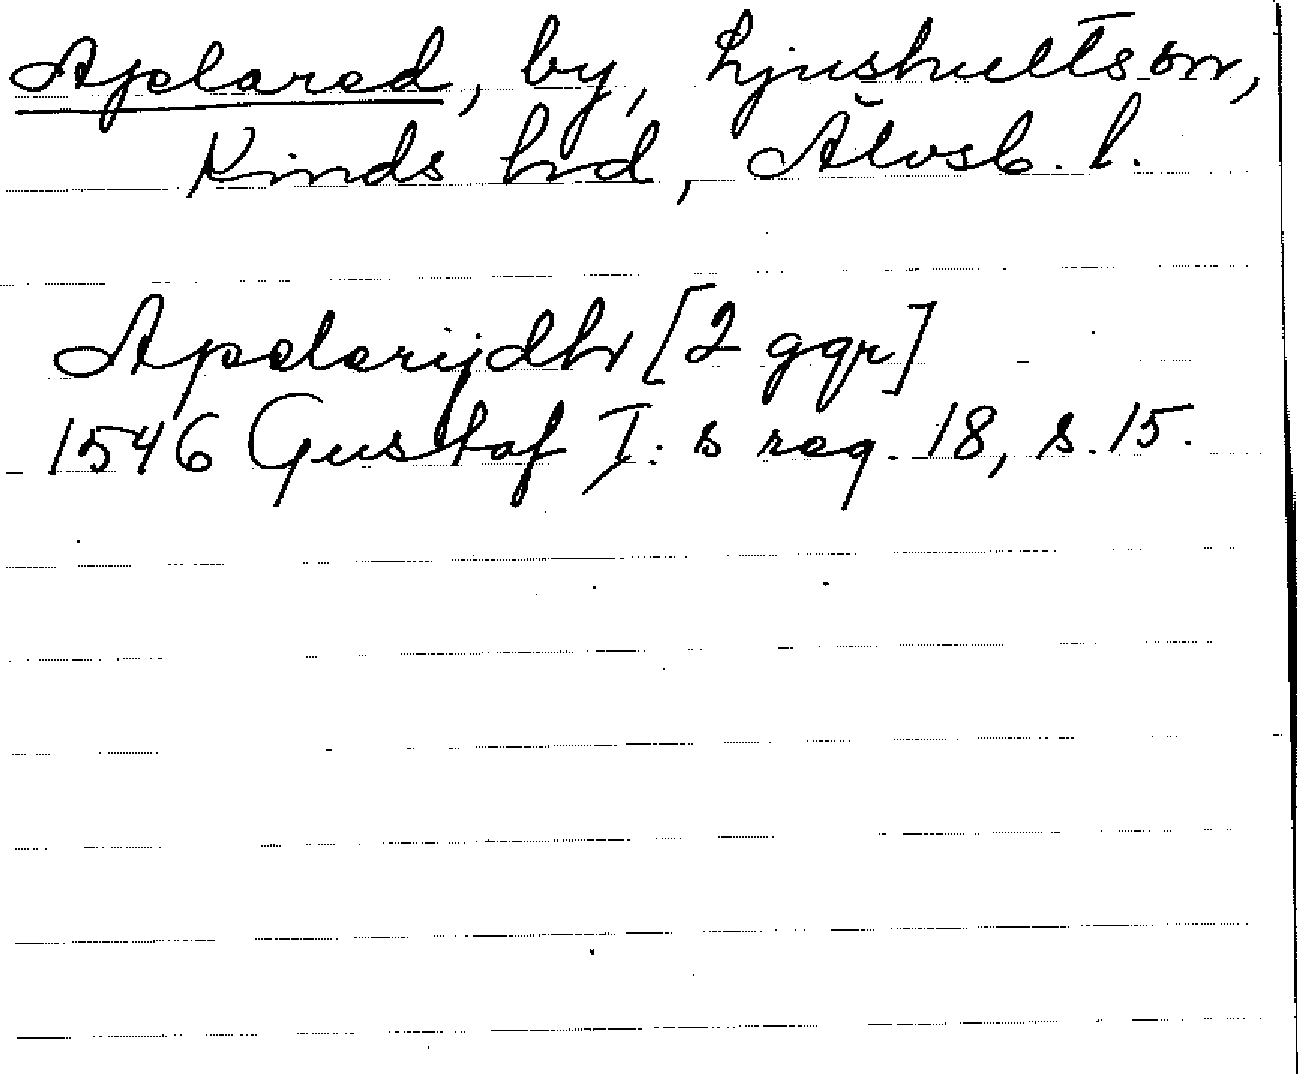 Apelared, by, Ljushults sn,
Kinds hd, Älvsb. l.
Apelarijdhr [2 ggr]
1546 Gustaf I:s reg. 18, s. 15.